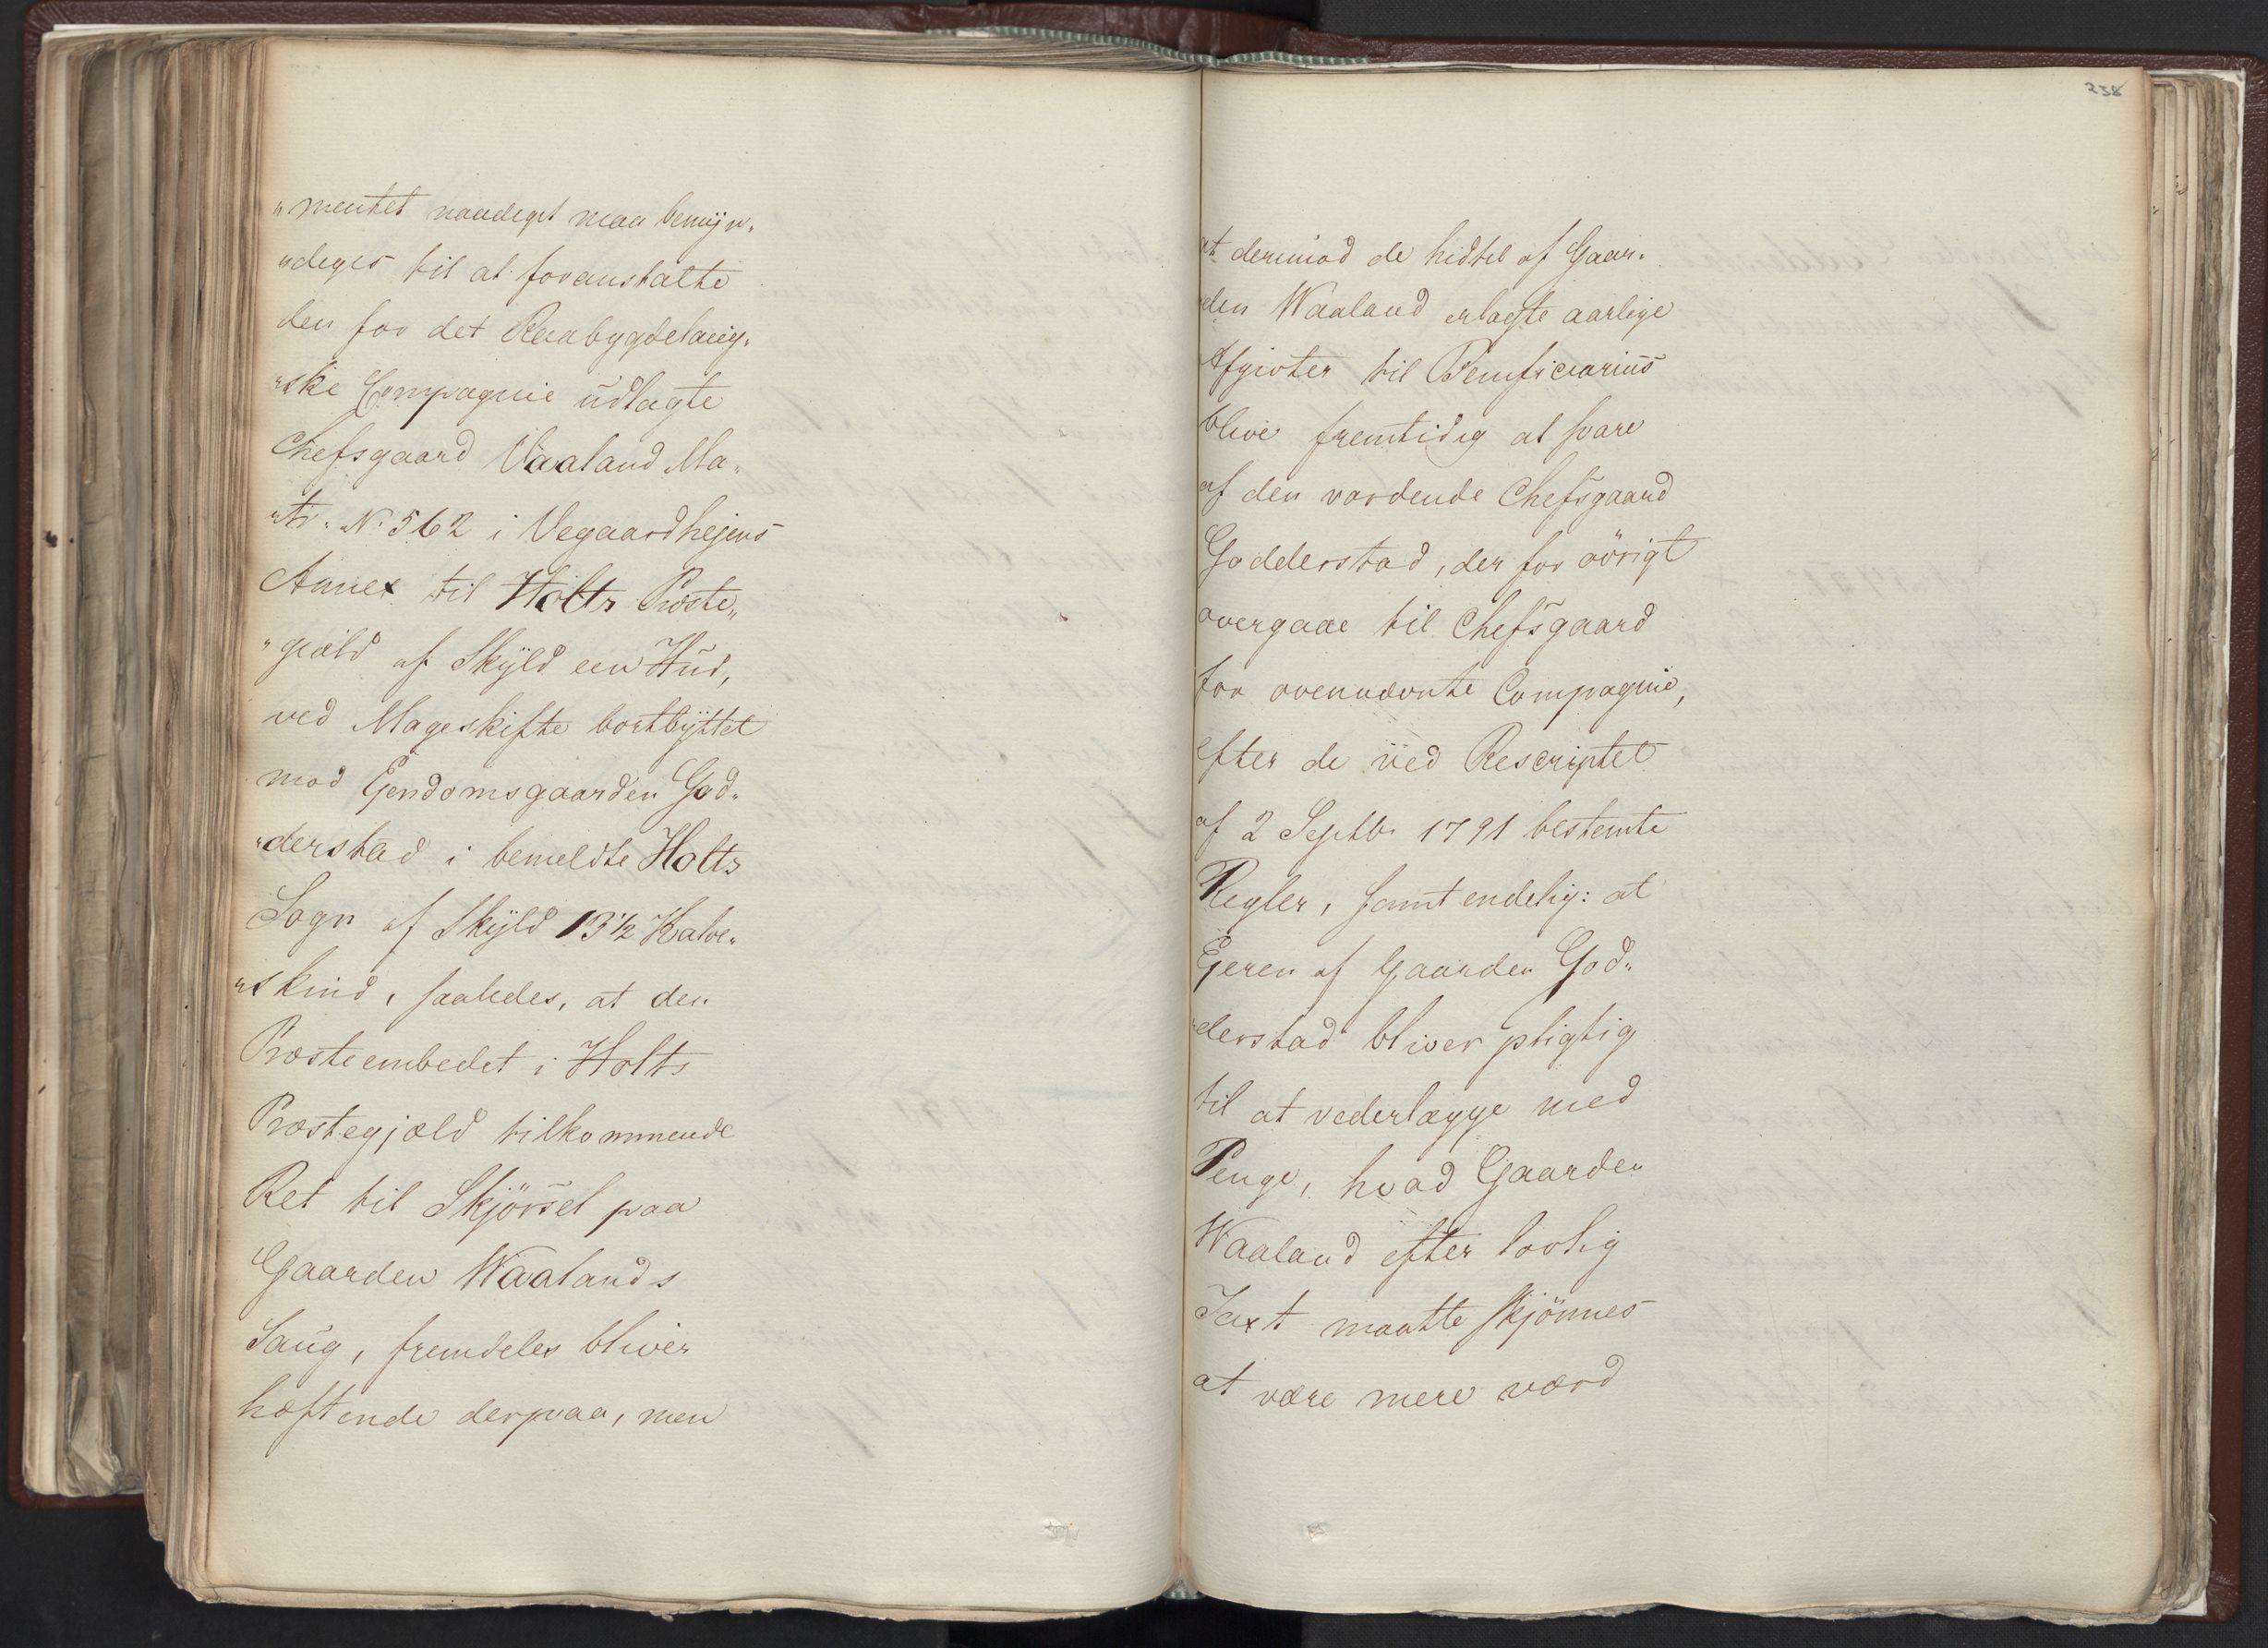 "mentet naadigst maa bemyn„
"deges til at foranstalte
den for det Raabygdelaug„
"ske Compagnie udlagte
Chefsgaard Vaaland Ma„
"tr. No 562 i Vegaardhejens
Annex til Holts Præste„
"gield af Skyld een Hud,
ved Mageskifte bortbyttet
mod Ejendomsgaarden God„
"derstad i bemeldte Holts
Sogn af Skyld 13½ Kalve„
"skind, saaledes, at den
Præsteembedet i Holts
Præstegjæld tilkommende
Ret til Skjørsel paa
Gaarden Waalands
Saug, fremdeles bliver
hæftende derpaa, men
238
at derimod de hidtil af Gaar„
den Waaland erlagte aarlige
Afgivter til Beneficiarius
blive fremtidig at svare
af den vordende Chefsgaard
Godderstad, der for øvrigt
overgaae til Chefsgaard
for ovennævnte Compagnie,
efter de ved Rescriptet
af 2 Septbr 1791 bestemte
Regler, samt endelig: at
Ejeren af Gaarden God„
"derstad bliver pligtig
til at vederlægge med
Penge, hvad Gaarden
Waaland efter lovlig
Taxt maatte skjønnes
at være mere værd